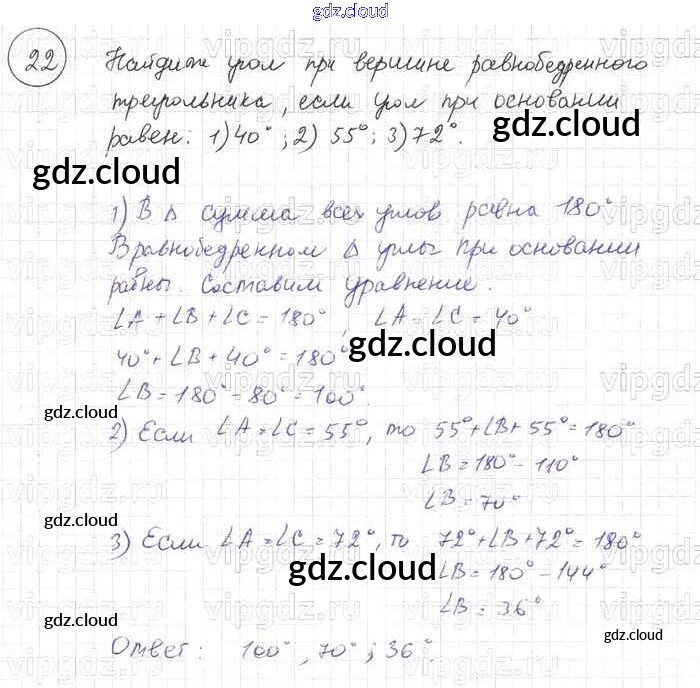 gdz.cloud
22 Найдите угол при вершине равнобедренного
треугольника, если угол при основании
равен: 1) 40°; 2) 55°; 3) 72°.
gdz.cloud
gdz.cloud
1) В Δ сумма всех углов равна 180°
В равнобедренном Δ углы при основании
равны. Составим уравнение.
∠A + ∠B + ∠C = 180°, ∠A = ∠C = 40°
40° + ∠B + 40° = 180°
gdz.cloud
∠B = 180° - 80° = 100°.
gdz.cloud
2) Если ∠A = ∠C = 55°, то 55° + ∠B + 55° = 180°
∠B = 180° - 110°
∠B = 70°
gdz.cloud
3) Если ∠A = ∠C = 72°, то 72° + ∠B + 72° = 180°
gdz.cloud
∠B = 180° - 144°
∠B = 36°
Ответ: 100°, 70°; 36°
gdz.cloud